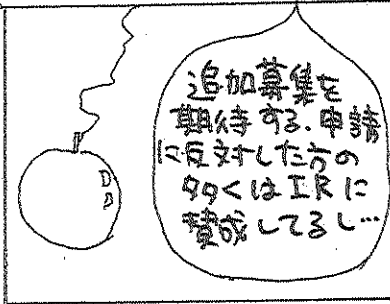 追加募集を
期待する.申請
に反対した方の
多くはIRに
賛成してるし…